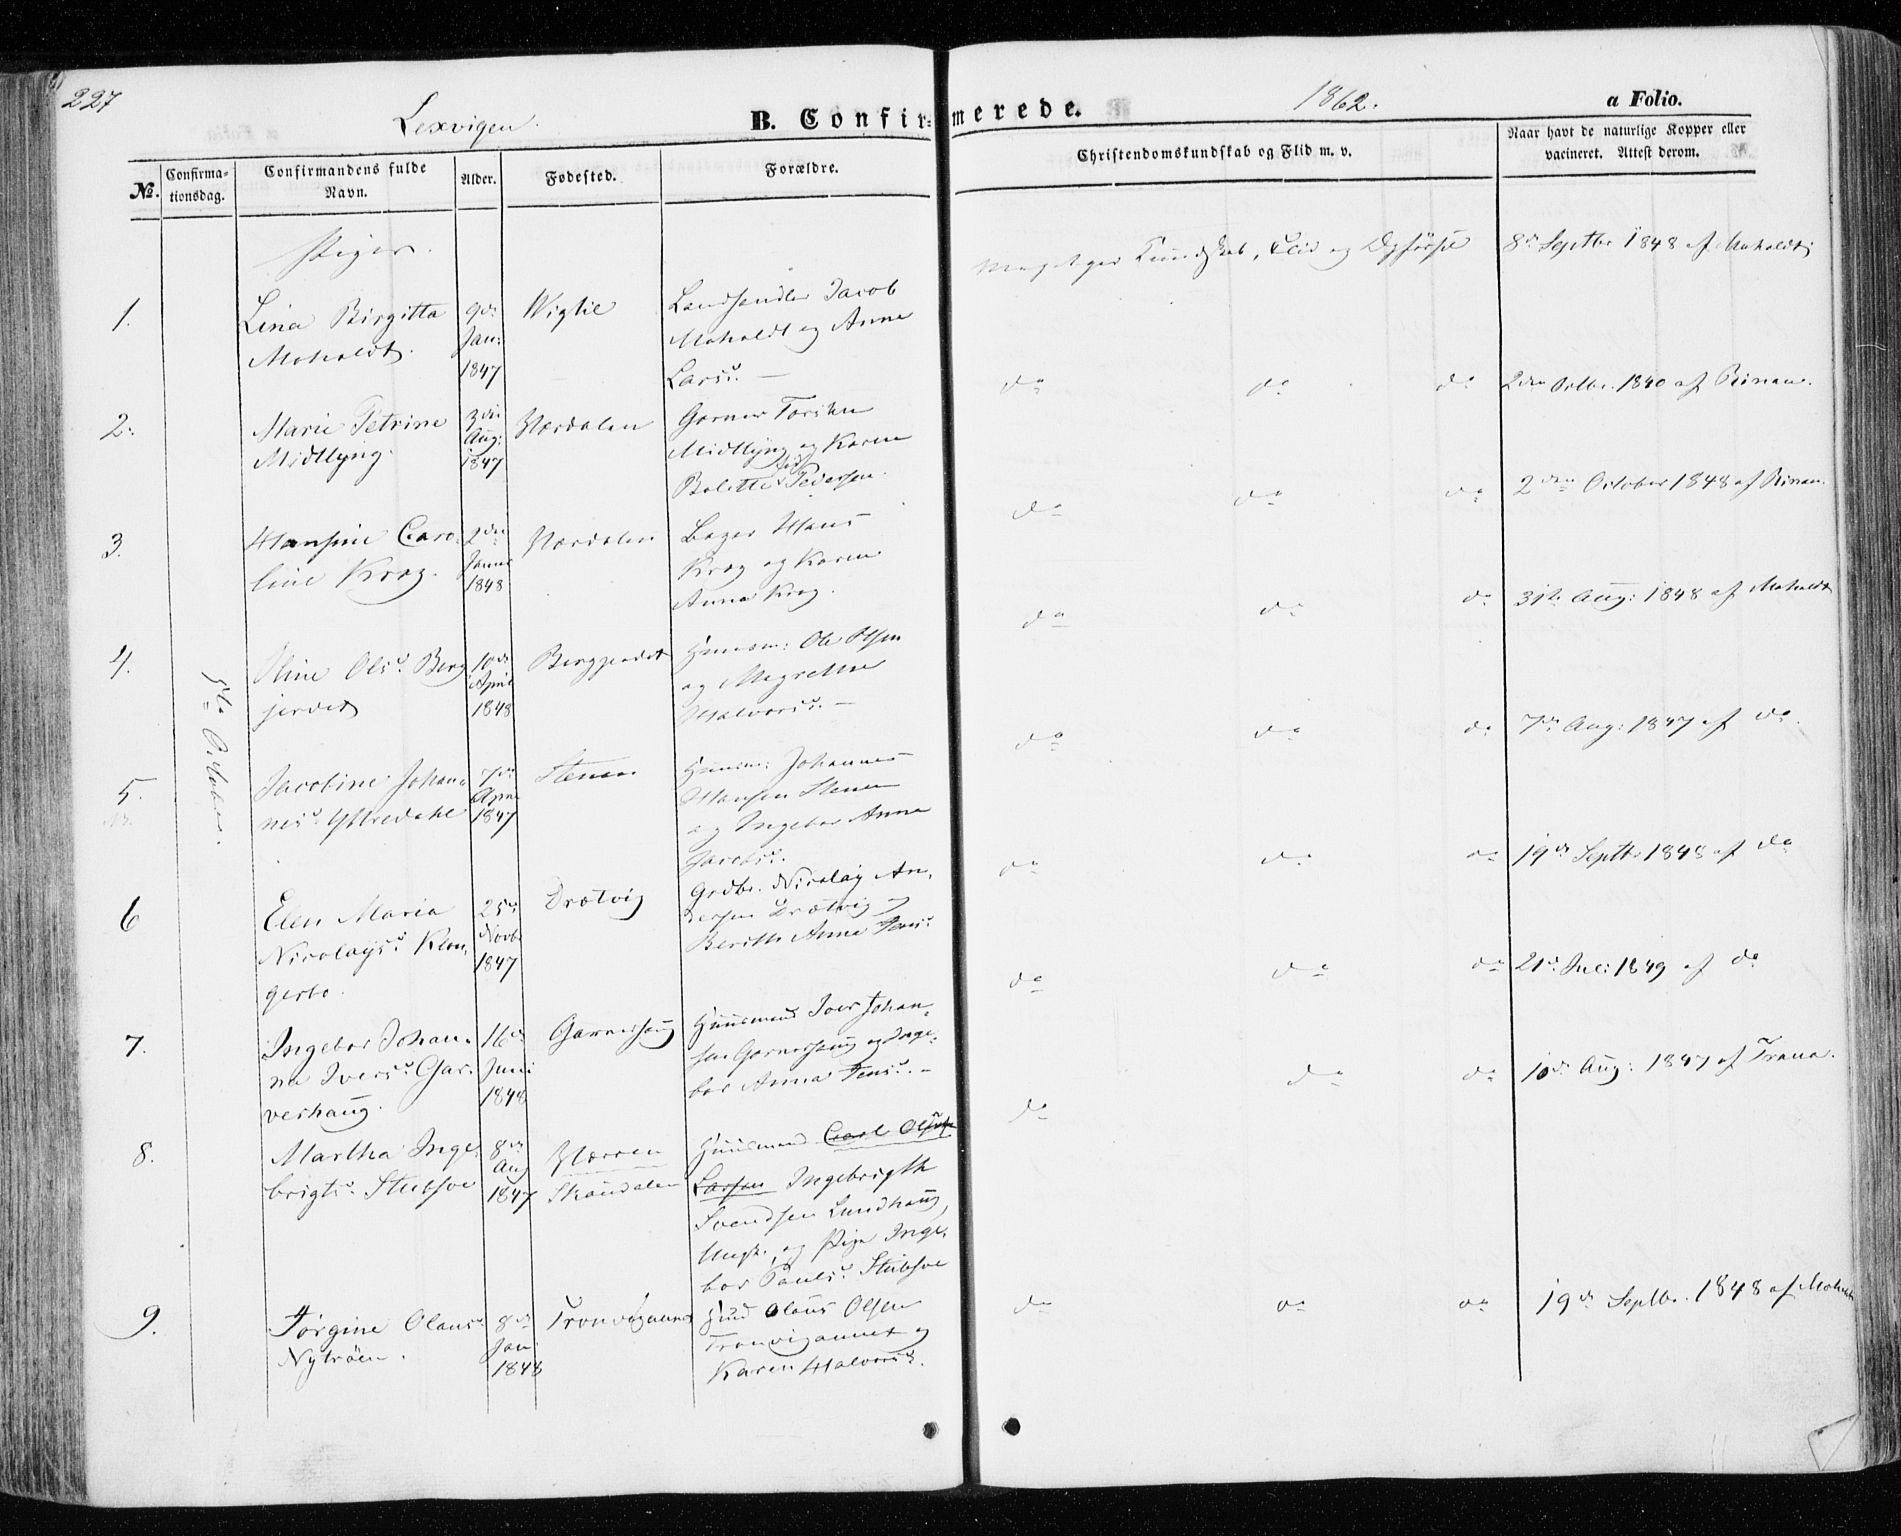 227
Lexvigen.
B. Confirmerede.
1862.
a Folio.
No.
Confirmationsdag.
Confirmandens fulde Navn.
Alder.
Fødested.
Forældre.
Christendomskundskab og Flid m. v.
Naar havt de naturlige Kopper eller vacineret. Attest derom.
Piger.
5te October.
1.
Lina Birgitta
Moholdt.
9de
Jan:
1847
Landhandler Jacob
Moholdt og Anne
Larsd. —
Meget god Kundskab, Flid og Opførsel
8de Septbr 1848 af Moholdt
2.
Marie Petrine
Midtlyng.
3die
Aug:
1847
Værdalen
Garver
Midtlyng og Karen
Bolette Pedersen.
do do do
af Rinan.
3.
Hansine Caroline Krog.
2den
Januar
1848
Værdalen
Bager Hans
Krog og Karen
Anna Krog.
do do do
2den October 1848 af Rinan.
4.
Oline Olsd. Bergjerdet
10de
April
1848
Husm: Ole Olsen
og Magrethe
Halvorsd. —
do do do
31te Aug: 1848 af Moholdt
5.
Jacobine Johannesd. Yttredahl
7de
1847
Stenen
Husm: Johannes
Hansen Stenen
og Ingebor Anna
Jacobsd.
do do do
7de Aug: 1847 af do.
6
Elen Maria
Nicolaysd. Klungerbo.
25de
Novb.
1847
Drætvig
Grdbr. Nicolay Andersen Drætvig og
Berith Anna Jensd.
do do do
19de Septbr 1848 af do
7.
Ingebor Johanna Iversd. Garvershaug.
16de
Juni
1848
Garvershaug
Huusmand Iver Johansen Garvershaug og Ingebor Anna Jensd. —
do do do
21de Juli 1849 af do
8.
Martha Ingebrigtsd. Stubsve
8de
Aug
1847
Værren
Skaudalen
Huusmand Carl Olsen
Larsen Ingebrigth
Svendsen Lundhaug,
Ungk. og Pige Ingebor Paulsd. Stubsve
do do do
10de Aug: 1847 af Trana.
9.
Jørgine Olausd.
Nytrøen.
8de
Jan
1848
Olaus Olsen
Karen Halvorsd.
do do do
19de Septbr. 1848 af Moholdt